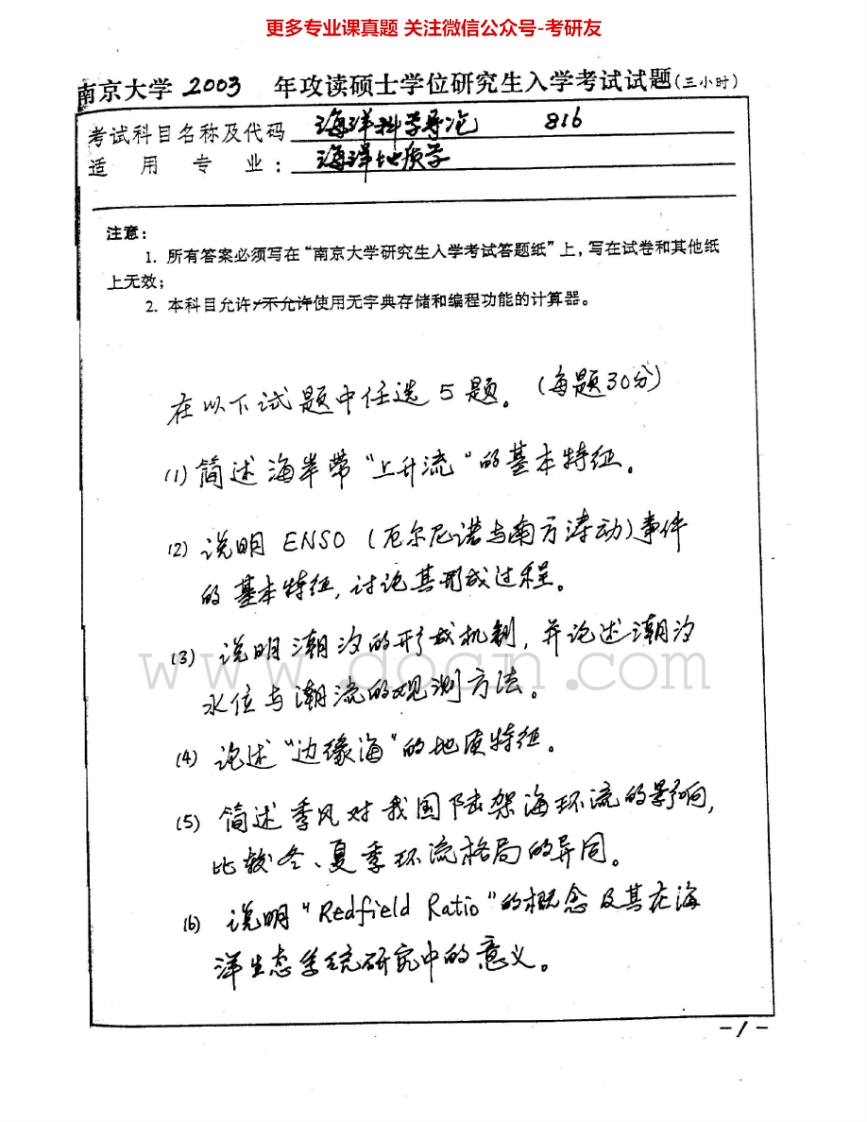 更多专业课真题 关注微信公众号-考研友
南京大学 2003 年攻读硕士学位研究生入学考试试题(三小时)
考试科目名称及代码 海洋科学导论 816
适用专业: 海洋地质学
注意:
1. 所有答案必须写在“南京大学研究生入学考试答题纸”上,写在试卷和其他纸
上无效;
2. 本科目允许/不允许使用无字典存储和编程功能的计算器。
在以下试题中任选5题。(每题30分)
(1) 简述海岸带“上升流”的基本特征。
(2) 说明ENSO(厄尔尼诺与南方涛动)事件
的基本特征,讨论其形成过程。
(3) 说明潮汐的形成机制,并论述潮汐
水位与潮流的观测方法。
www.docn.com
(4) 论述“边缘海”的地质特征。
(5) 简述季风对我国陆架海环流的影响,
比较冬、夏季环流格局的异同。
(6) 说明“Redfield Ratio”的概念及其在海
洋生态系统研究中的意义。
-1-